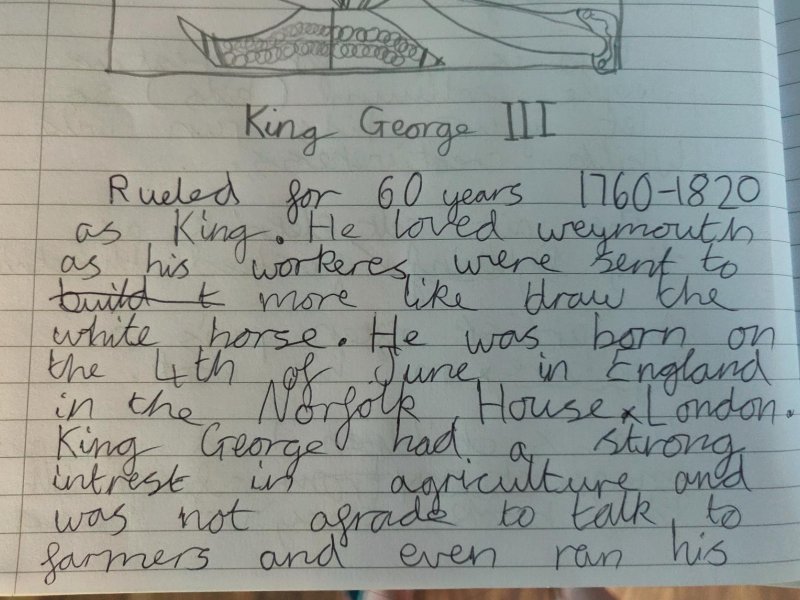 King George III
Rueled for 60 years 1760-1820
as King. He loved weymouth
as his workeres were sent to
build t more like draw the
white horse. He was born on
the 4th of June in England
in the Norfolk House x London.
King George had a strong
intrest in agriculture and
was not agrade to talk to
farmers and even ran his